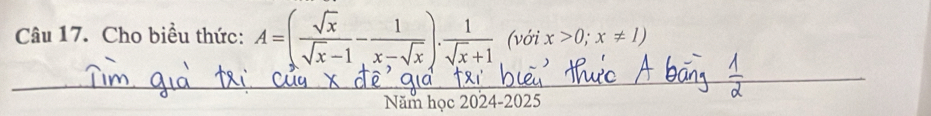 Câu 17. Cho biểu thức: A = (√x/(√x−1) − 1/(x−√x)) . 1/(√x+1) (với x > 0; x ≠ 1)
Tìm giá trị của x để giá trị biểu thức A bằng 1/2
Năm học 2024-2025